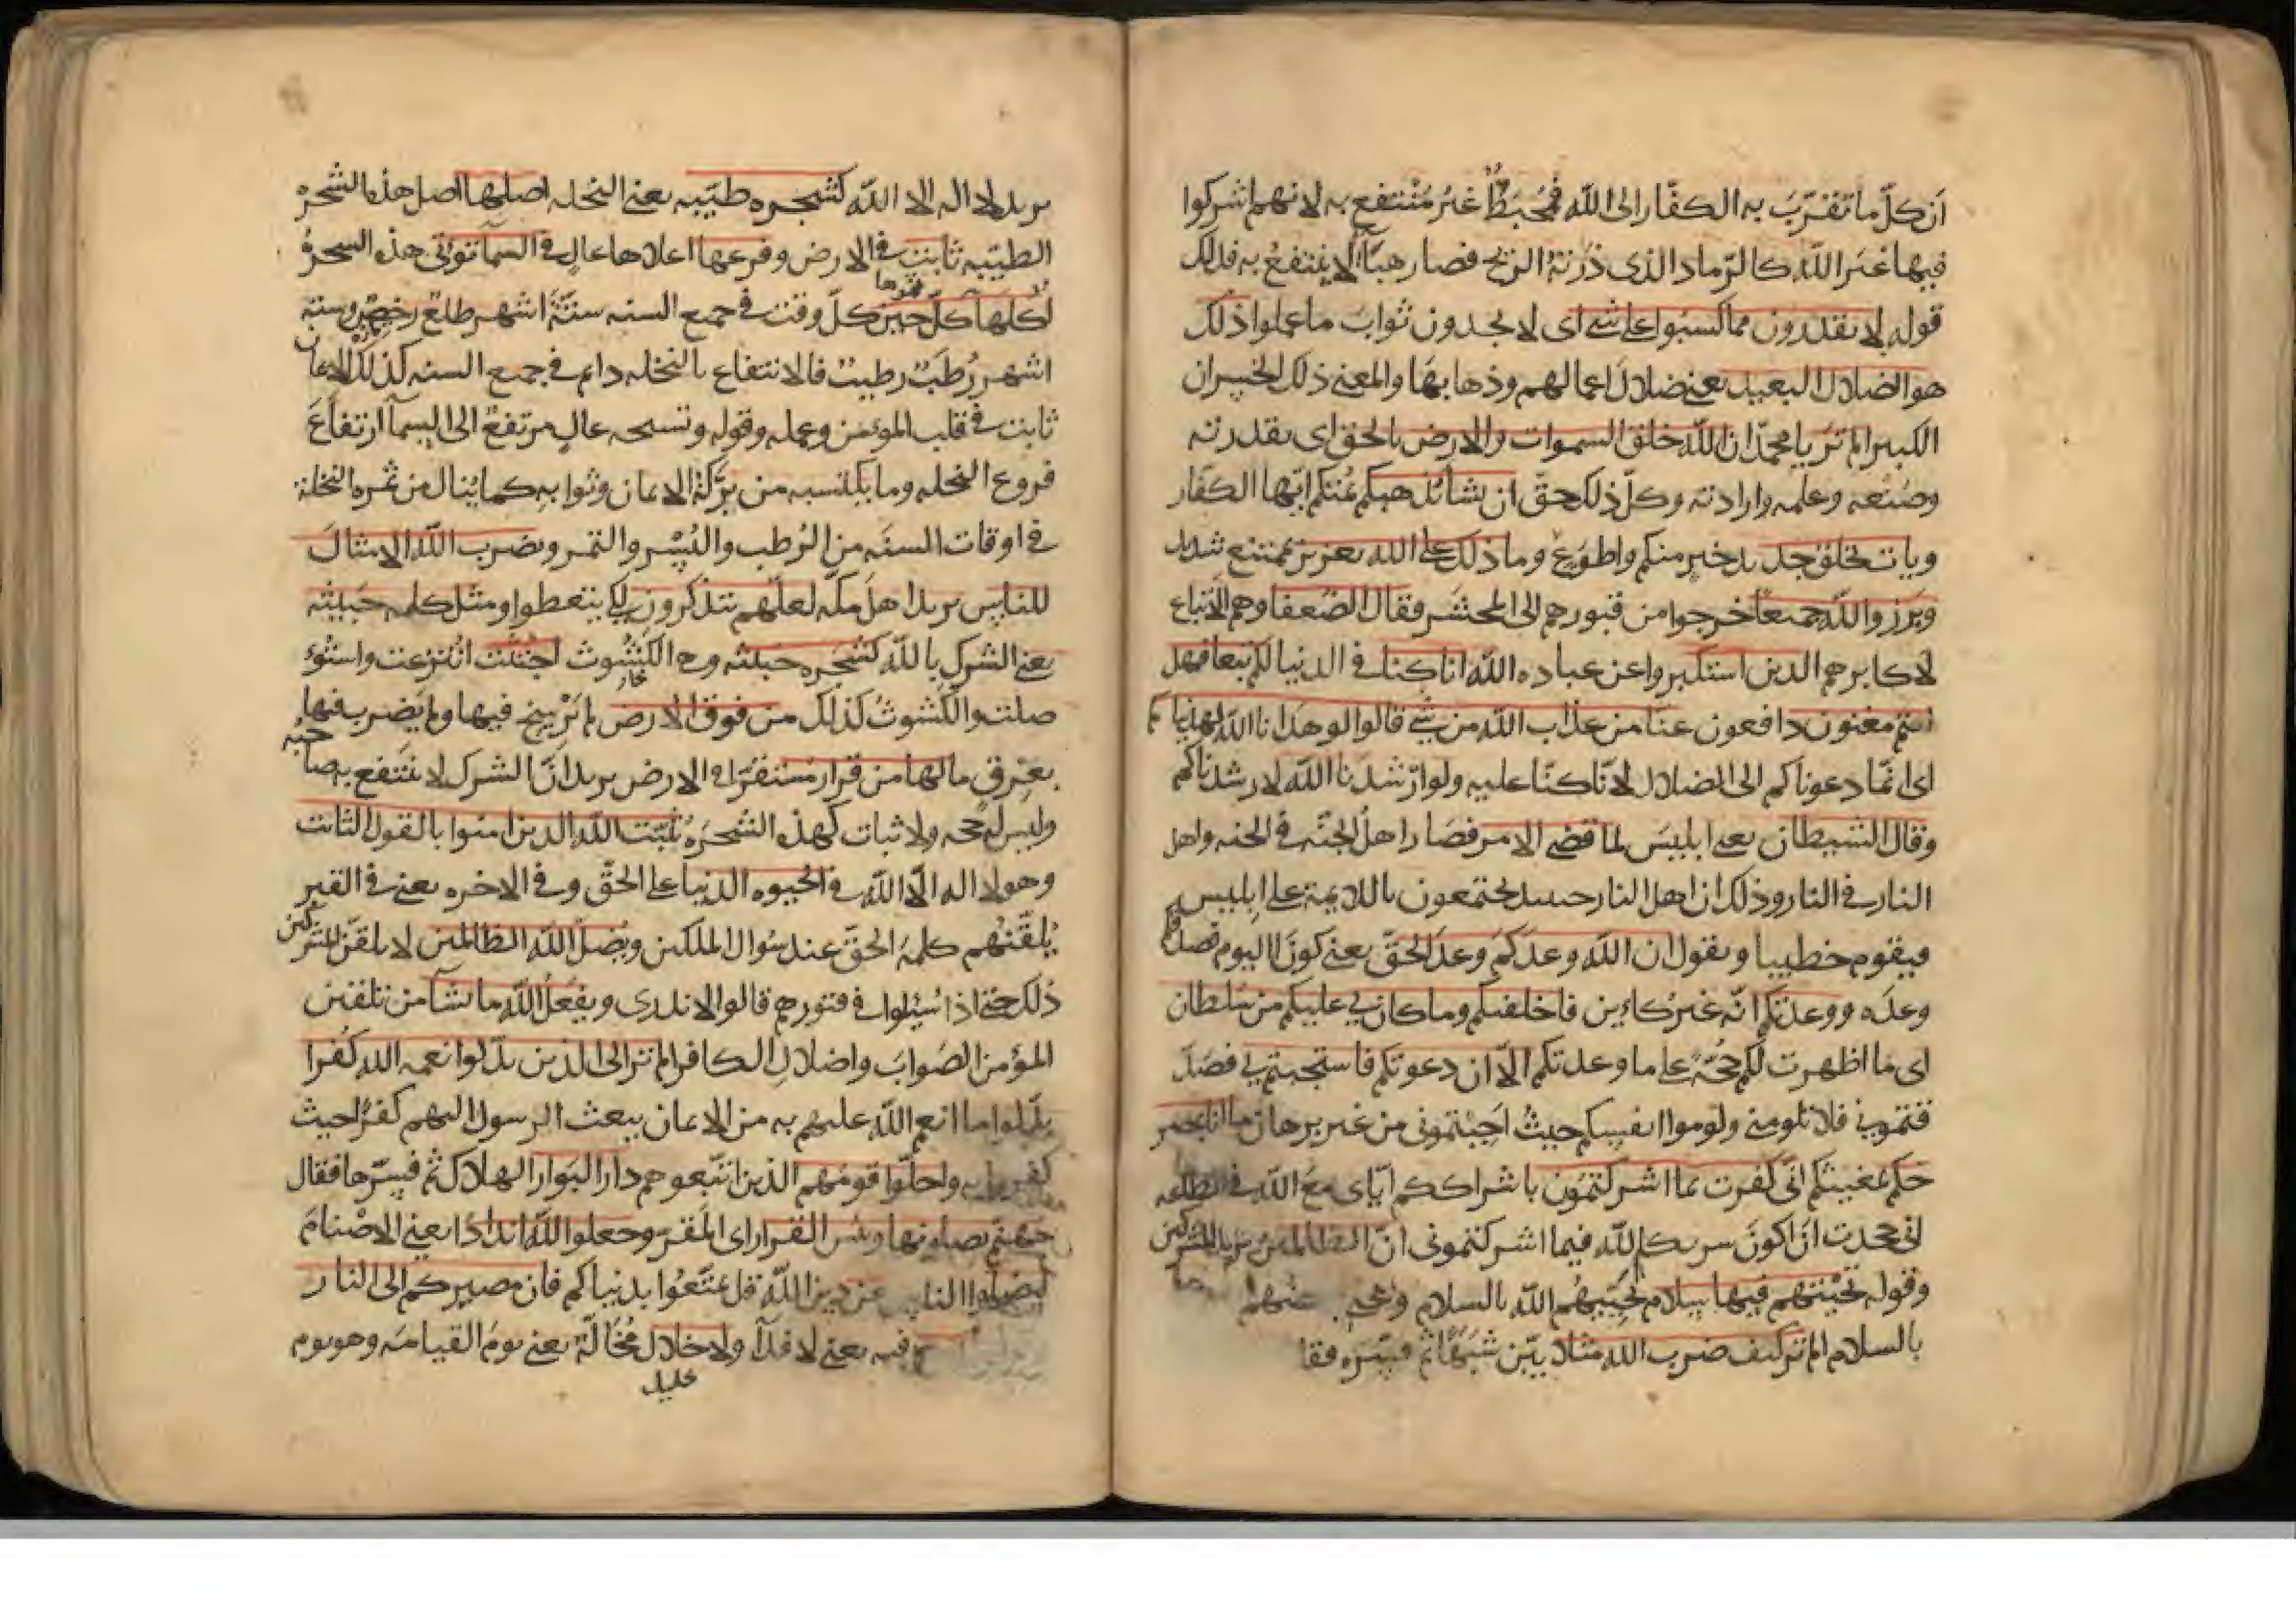 ان كلّ ما تقرّب به الكفّار الى الله فمُحبَطٌ غيرُ مُنْتفع به لانهم اشركوا
فيها غير الله كالرّماد الذى ذرته الريح فصار هبآ لا ينتفعُ به فذلك
قوله لا يقدرون مما كسبوا على شى اى لا يجدون ثوابَ ما عملوا ذلك
هو الضلال البعيد يعنى ضلالَ اعمالهم وذهابهَا والمعنى ذلك الخسران
الكبير الم تر يا محمّد ان الله خلق السموات والارض بالحق اى بقدرته
وصُنعه وعلمه وارادته وكلّ ذلك حقّ ان يشأ يُذهبكم يُمتكم ايّها الكفّار
ويات بخلق جديد خير منكم واطوَع وما ذلك على الله بعزيز بممتنع شديد
وبَرزوا لله جميعًا خرجوا من قبورهم الى المحشر فقال الضّعفا وهم الاتباع
لاكابرهم الذين استكبروا عن عباده الله انا كنا فى الدنيا لكم تبعا فهل
انتم مغنون دافعون عنّا من عذاب الله من شى قالوا لو هدانا الله لهديناكم
اى انمّا دعوناكم الى الضلال لانّا كنّا عليه ولو ارشدَنا الله لارشدناكم
وقال الشيطان يعنى ابليسَ لما قضى الامر فصَار اهلُ الجنّه فى الجنه واهل
النار فى النار وذلك ان اهل النار حينيذ يجتمعون باللايمة على ابليس
فيقوم خطيبا ويقول ان الله وعدكم وعدَ الحقّ يعنى كونَ اليوم فصدقكم
وعدَه ووعدتكم انّه غيرُ كائين فاخلفتكم وما كان لى عليكم من سُلطان
اى ما اظهرت لكم حُجّةً على ما وعدتكم الّا ان دعوتكم فاستجبتم لى فصدّ
قتمونى فلا تلومنى ولوموا انفسكم حيثُ اجبتمونى من غير برهان ما انا بمصر
خكم بمغيثكم انّى كفرت بما اشركتمون باشراككم ايّاى معَ الله فى الطاعه
انى جحدت ان اكونَ شريكا لله فيما اشركتمونى انّ الظالمين يريد المشركين
وقوله تحيّتهم فيها سلام يُحيّيهُم الله بالسلام
بالسلام الم تر كيف ضرب الله مثلا بيّن شبَهًا ثم فسّره فقا
يريد لا اله الا الله كشجره طيّبه يعنى النخله اصلها اصل هذه الشجره
الطيّبه ثابت فى الارض وفرعها اعلاها عالٍ فى السمآ تؤتى هذه الشجرةُ
اُكلها ثمرها كلّ حين كلّ وقت فى جميع السنه ستّةَ اشهر طلع رخيص وستة
اشهر رُطَب رطيب فالانتفاع بالنخله دايم فى جميع السنه كذلك الايمان
ثابت فى قلب المومن وعمله وقوله وتسبيحه عالٍ مرتفع الى السمآ ارتفاعَ
فروع النخله وما يكتسبه من برَكة الايمان وثوابه كما يُنال من ثمره النخلة
فى اوقات السنَه من الرُطب والبُسْر والتمر ويضرب الله الامثالَ
للناس يريد اهل مكه لعلّهم يتذكرون لكى يتعظوا ومثل كلمه خبيثه
يعنى الشرك بالله كشجره خبيثه وهى الكَشُوث اجتثّت انتُزعت واستُوْ
صلت والكَشوثُ كذلك من فوق الارض لم تَرْسخ فيها ولم يَضرب فيها
بعِرقٍ ما لها من قرار مستقرّ فى الارض يريد انّ الشرك لا ينتفع به صاحبه
وليس له حجه ولا ثبات كهذه الشجرَه يُثبّت الله الذين امنوا بالقول الثابت
وهو لا اله الّا الله فى الحيوه الدنيا على الحقّ وفى الاخره يعنى فى القبر
يُلقّنهُم كلمةَ الحقّ عند سُوال الملكين ويُضلّ الله الظالمين لا يلقّن المشركين
ذلك حتى اذا سُئلوا فى قبورهم قالوا لا ندرى ويفعلُ الله ما يشآ من تلقين
المؤمن الصَوابَ واضلال الكافر الم تر الى الذين بدّلوا نعمه الله كفرا
بدّلوا ما انعم الله عليهم به من الايمان ببعث الرسول اليهم كفرًا حيث
كفروا به واحلّوا قومَهم الذين اتّبعوهم دار البَوار الهلاك ثم فسّرها فقال
جهنم يصلونها وبئس القرار اى المقر وجعلوا لله اندادًا يعنى الاصْنامَ
ليضلّوا الناس عن دين الله قل تمتّعُوا بدنياكم فان مصيركم الى النار
فيه يعنى لا فدآ ولا خلال مُخَالّة يعنى يومَ القيامَه وهو يوم
خليل